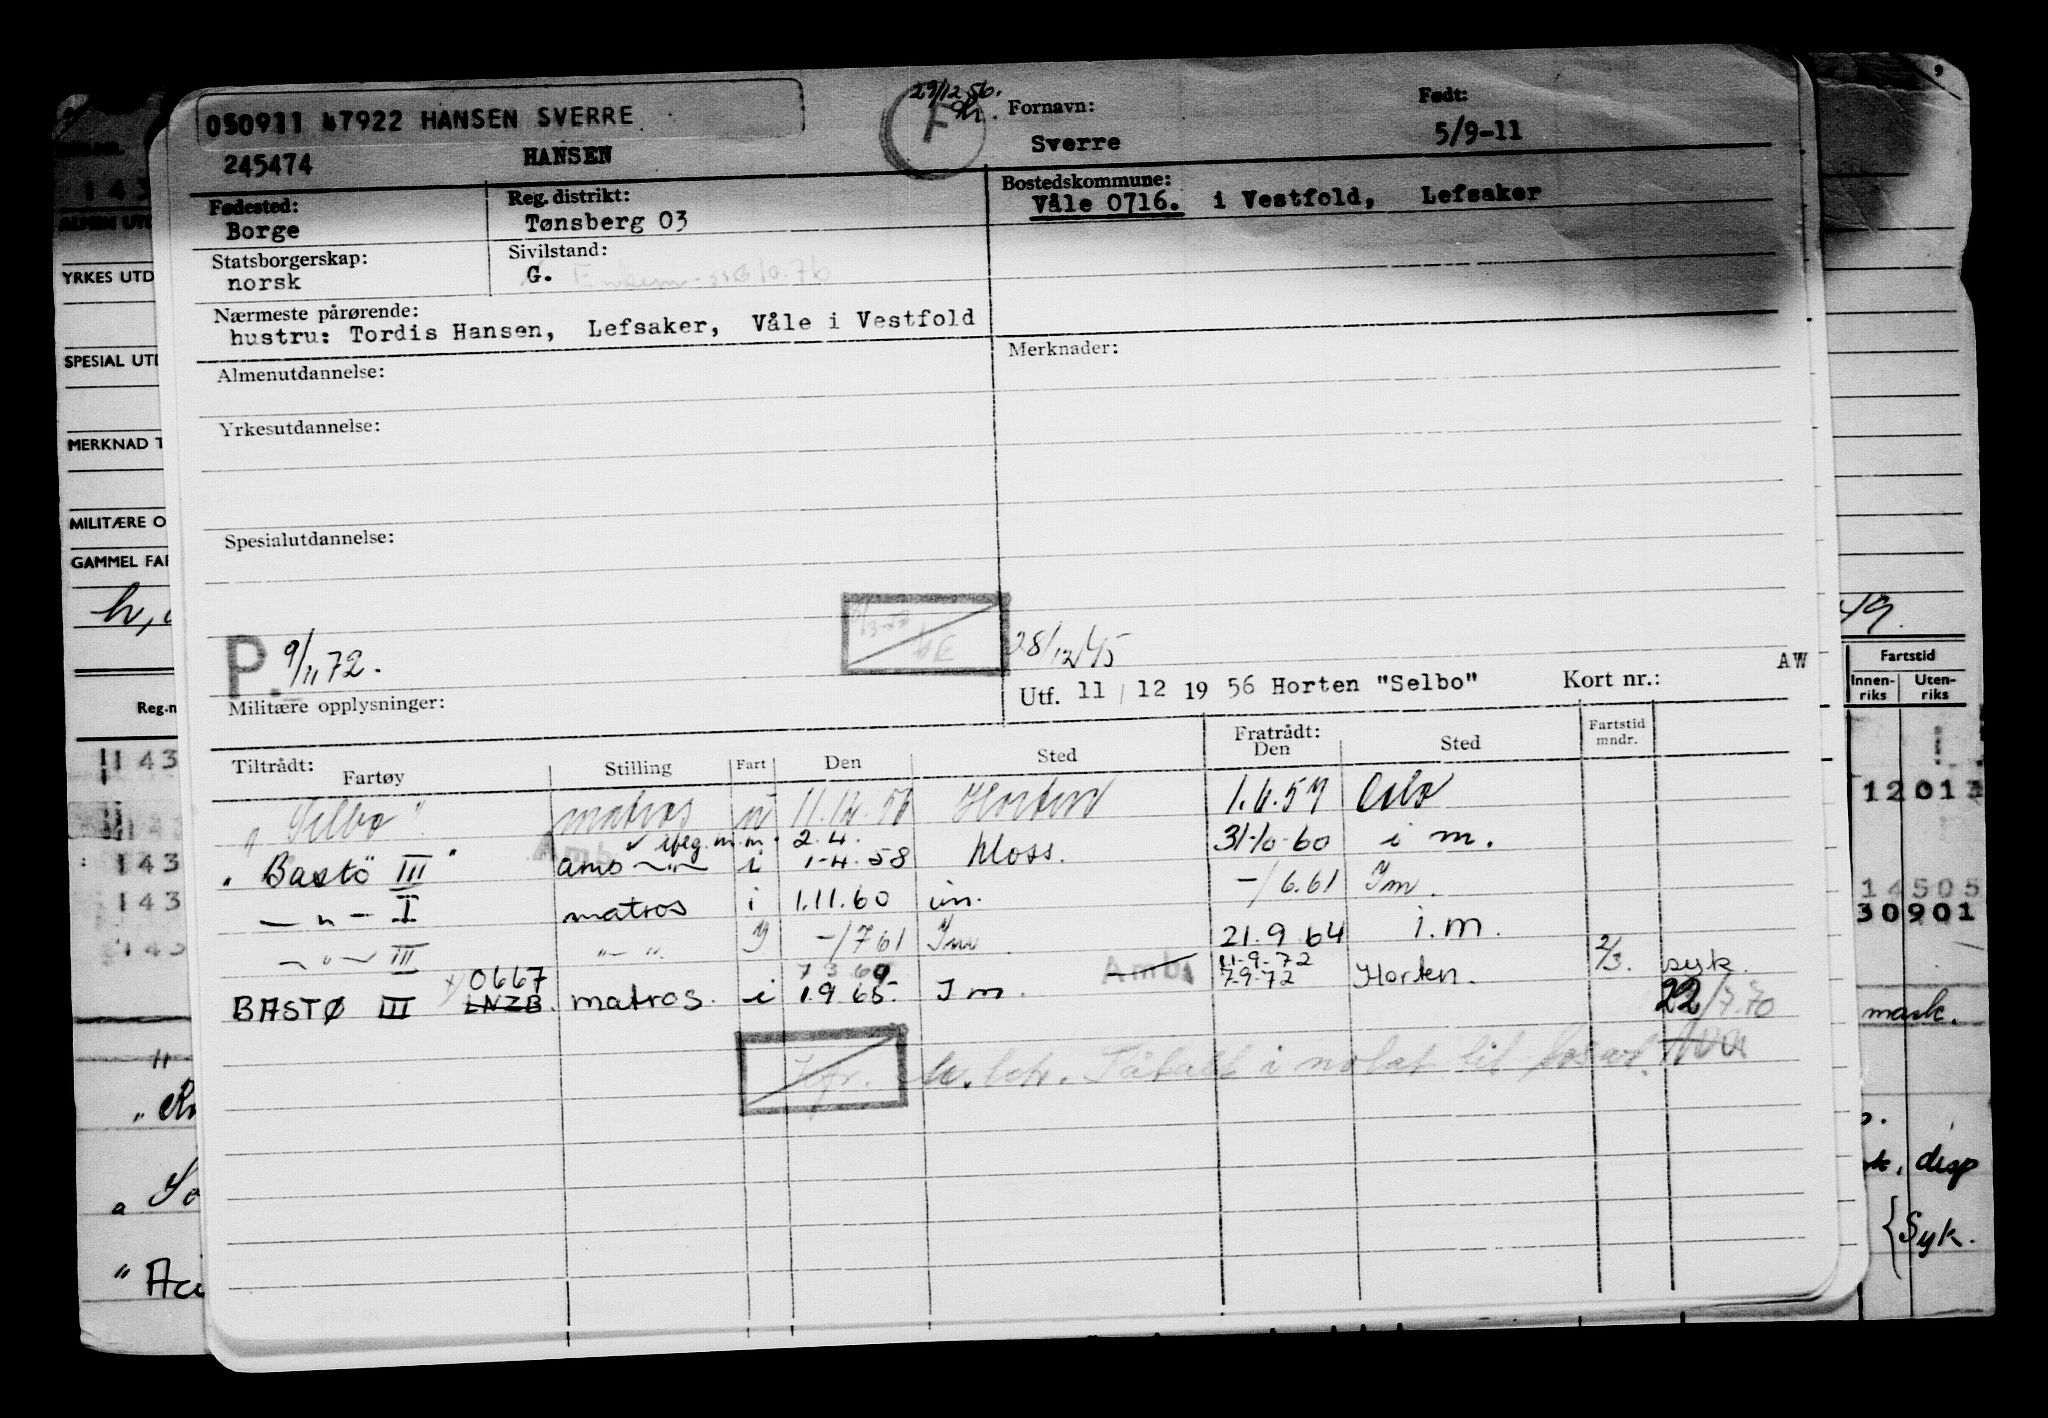 29/12 56.
050911 47922 HANSEN SVERRE
Fornavn: Født:
245474 HANSEN F Sverre 5/9-11
Fødested: Reg. distrikt: Bostedskommune:
Borge Tønsberg 03 Våle 0716. i Vestfold, Lefsaker
Statsborgerskap: Sivilstand:
norsk G.
Nærmeste pårørende:
hustru: Tordis Hansen, Lefsaker, Våle i Vestfold
Almenutdannelse: Merknader:
Yrkesutdannelse:
Spesialutdannelse:
P. 9/11 72. 28/12/45
AW
Militære opplysninger: Utf. 11 / 12 19 56 Horten "Selbo" Kort nr.:
Tiltrådt: Fratrådt: Fartstid mndr.
Fartøy Stilling Fart Den Sted Den Sted
"Selbo" matros u 11.12.56 Horten 1.6.57 Oslo
2.4.
"Bastö III" i 1-4.58 Moss. 31-10-60 i m.
— " — I matros i 1.11.60 im. -/6.61 Im.
— " — III — " — -/761 Im 21.9 64 i.m.
0667 Amb. 11-9-72 2/3. syk.
BASTØ III LNZB. matros. i 1.9 65. Im. 7-9-72 Horten. 22/7.70
YRKES UTD
SPESIAL UTD
MERKNAD T
MILITÆRE O
GAMMEL FAR
Reg.n
143
143
143
143
Fartstid
Innenriks Utenriks
1201
14505
30901
mask.
disp
{Syk.